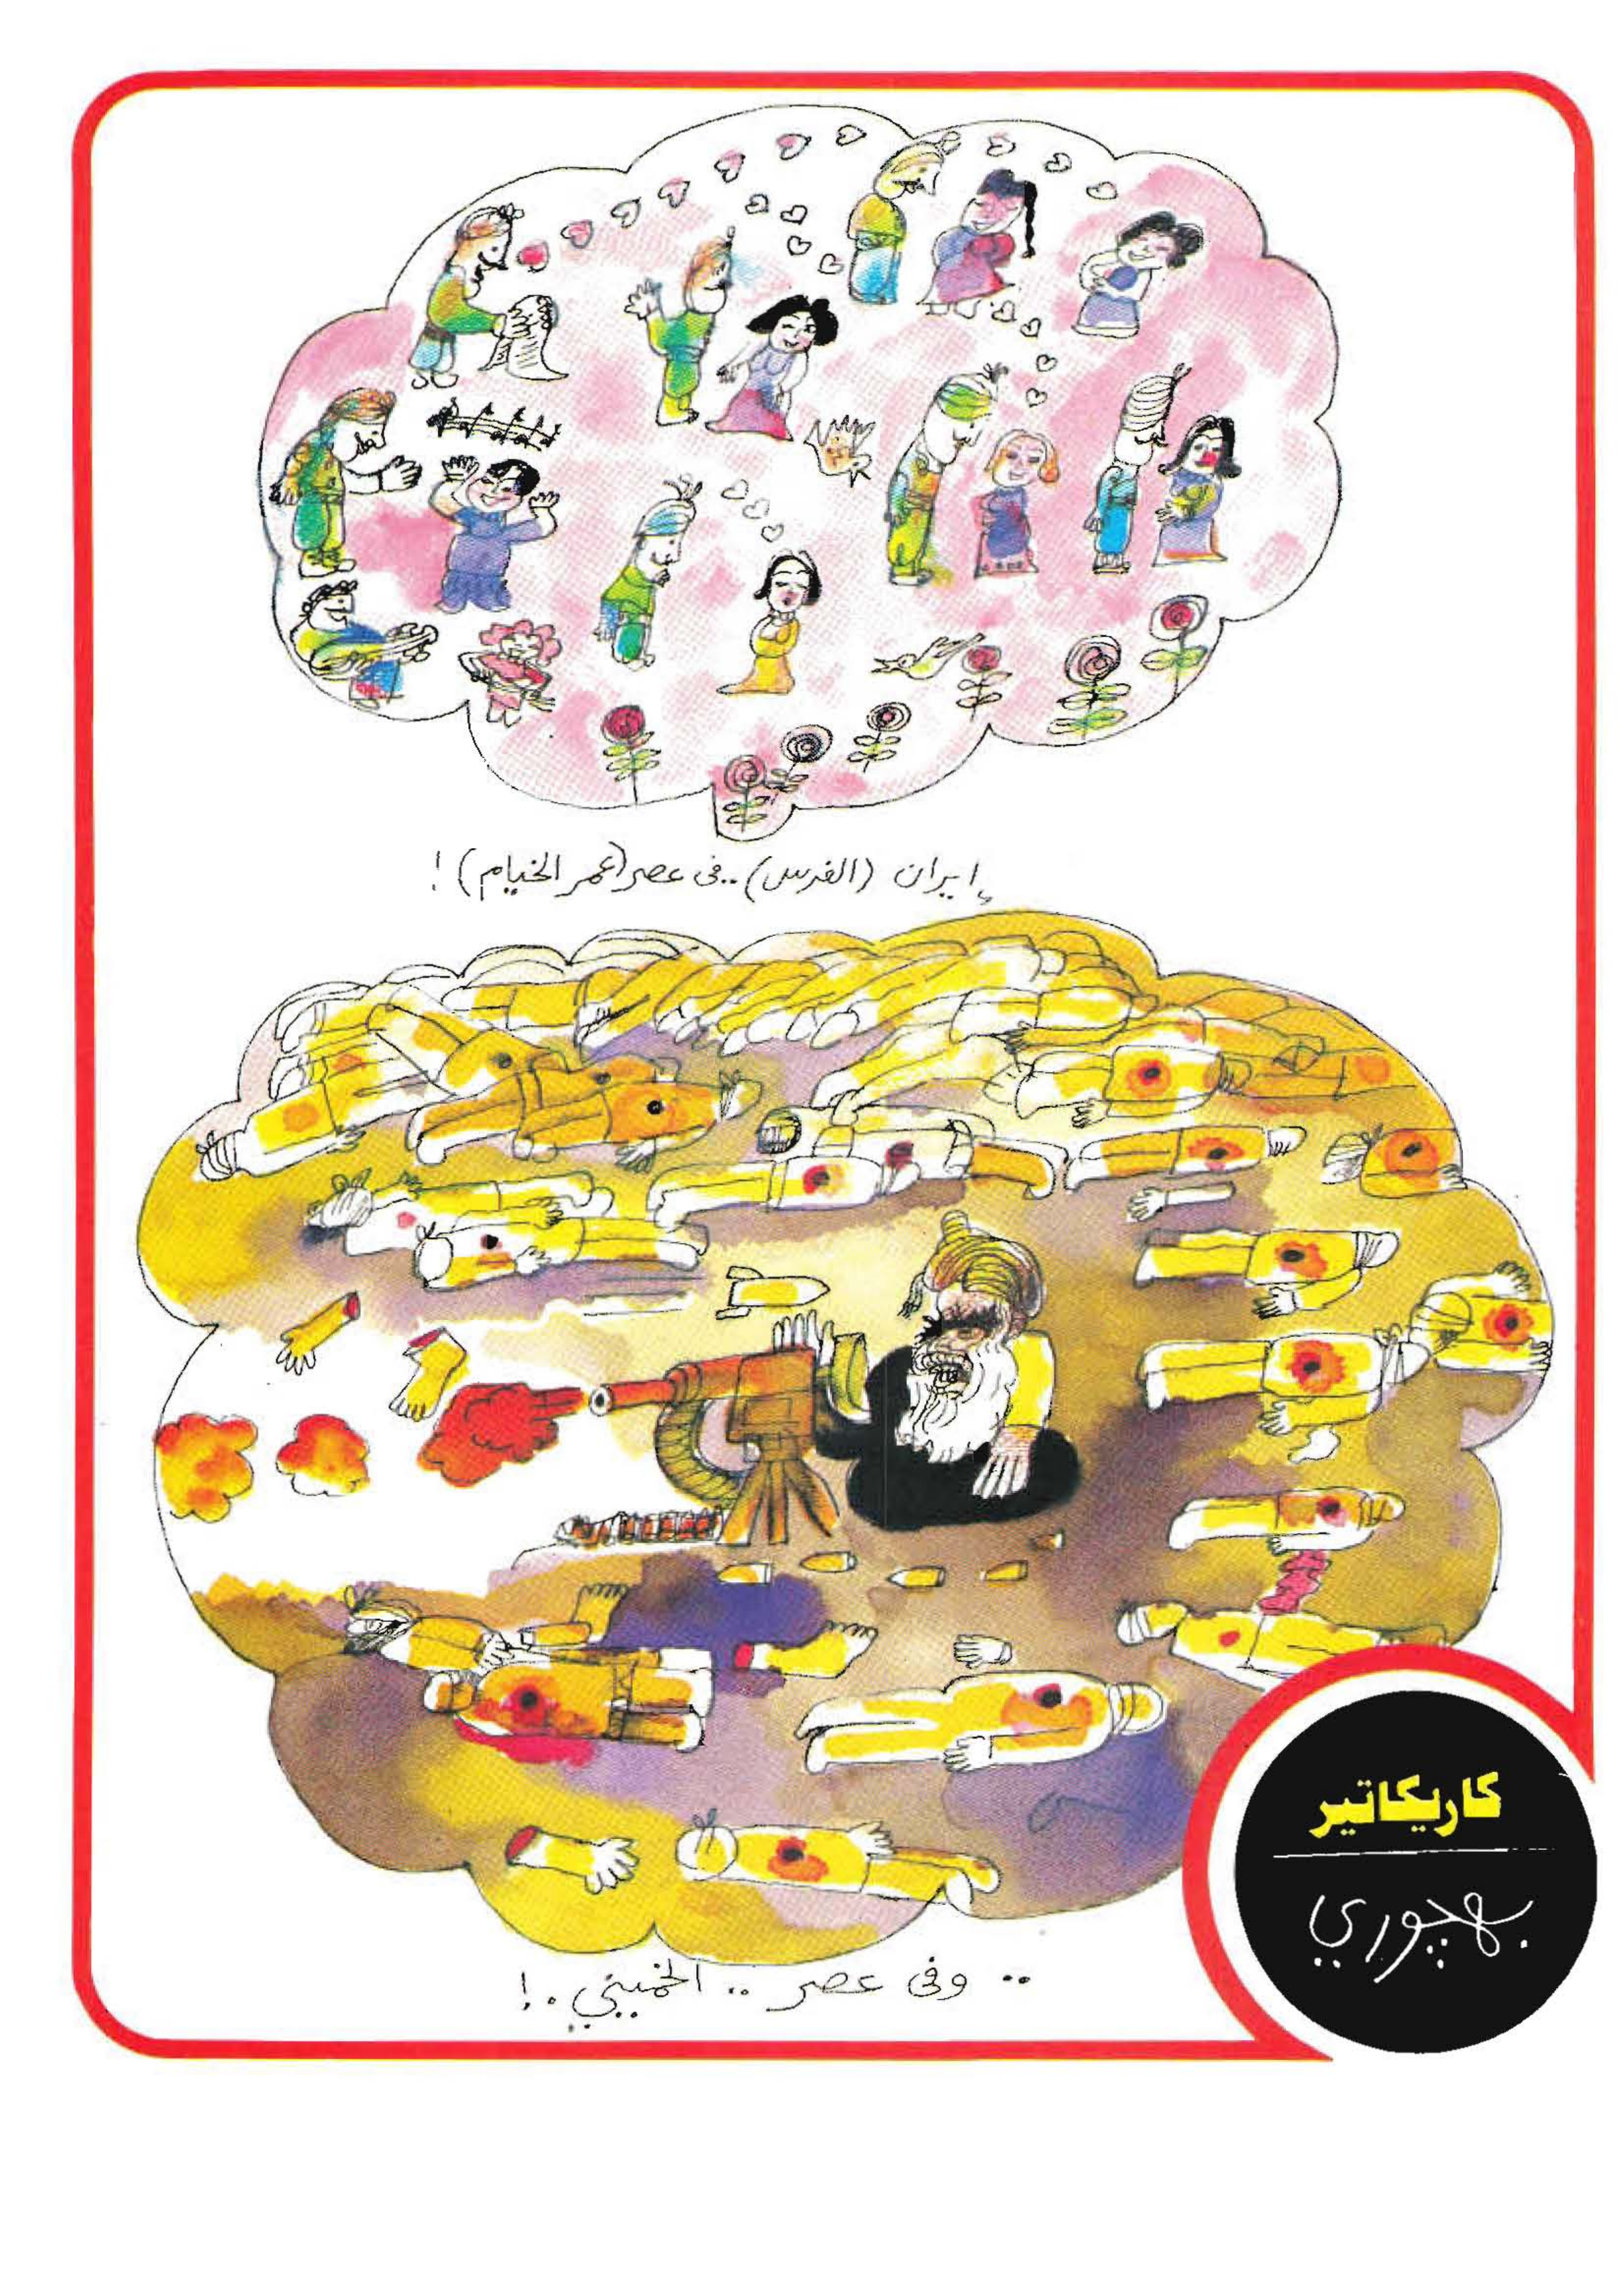 إيران (الفرس) .. فى عصر (عمر الخيام) !
.. وفى عصر .. الخميني .. !
كاريكاتير
بهجوري